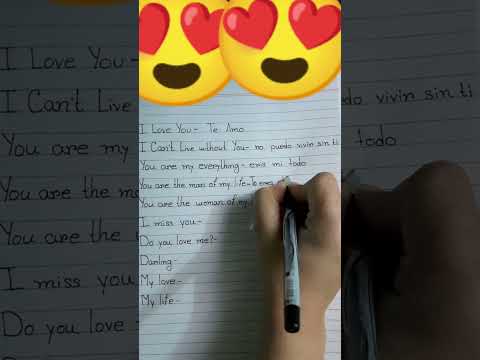 I Love You- Te Amo
I Can't Live without You- no puedo vivin sin ti
You are my everything- eres mi todo
You are the man of my life- Tu eres
You are the woman of my
I miss you-
Do you love me?-
Darling-
My love-
My life-